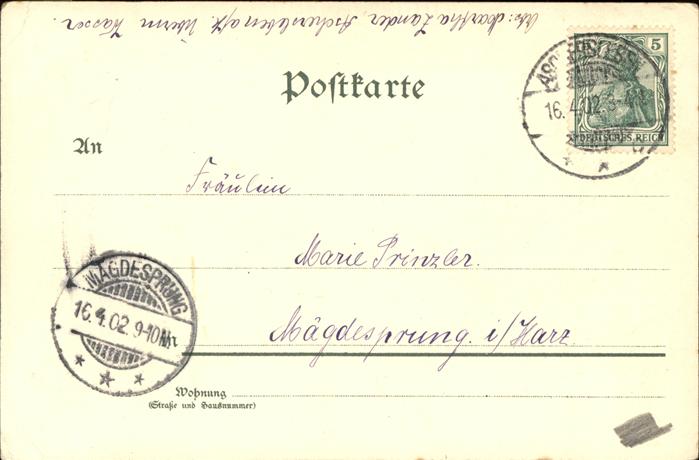 Abs: Martha Zander, Aschersleben a/t. Überm Wasser.
Postkarte
ASCHERSLEBEN
16.4.02.
5
DEUTSCHES REICH
An
Fräulein
Marie Prinzler.
Mägdesprung. i/Harz.
MÄGDESPRUNG
16.4.02.9-10Nm
Wohnung
(Straße und Hausnummer)